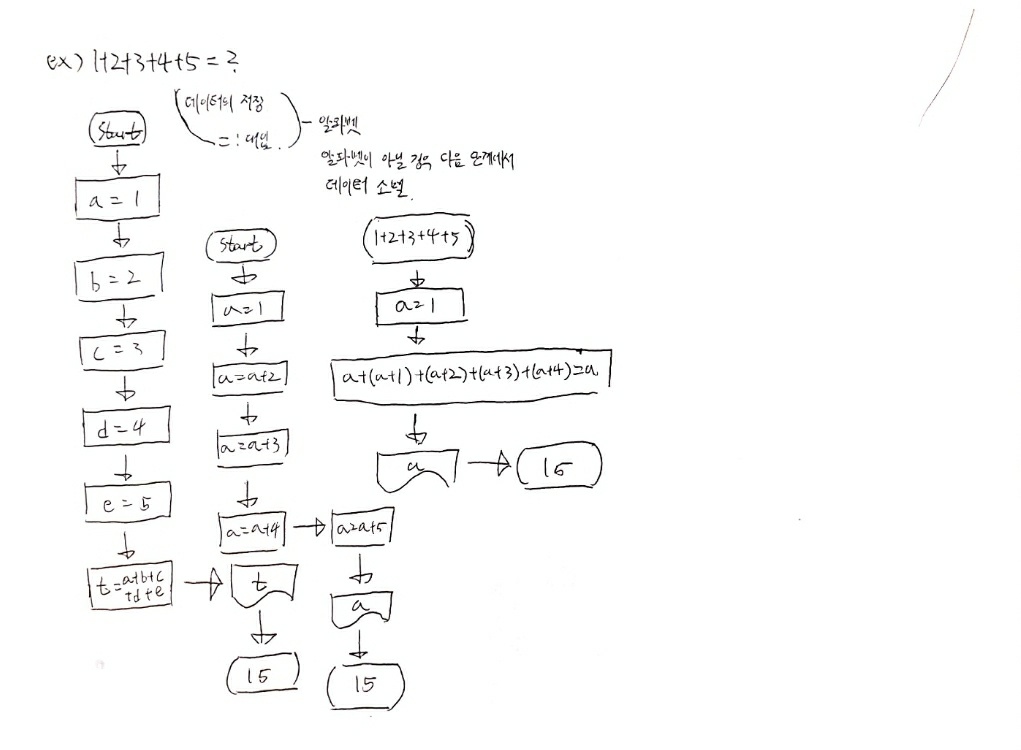 ex) 1+2+3+4+5 = ?
데이터의 저장
= : 대입.
- 알파벳
알파벳이 아닐 경우 다음 단계에서
데이터 소멸.
Start
a = 1
b = 2
c = 3
d = 4
e = 5
t = a+b+c
+d+e
t
15
Start
a=1
a=a+2
a=a+3
a=a+4
a=a+5
a
15
1+2+3+4+5
a=1
a+(a+1)+(a+2)+(a+3)+(a+4)=a
a
15